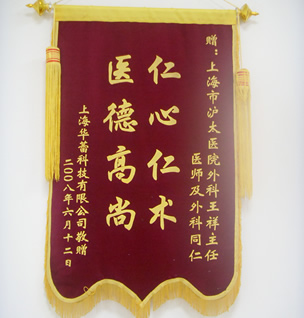 赠：上海市沪太医院外科王祥主任
医师及外科同仁
仁心仁术
医德高尚
上海华蕾科技有限公司敬赠
二00八年六月十二日